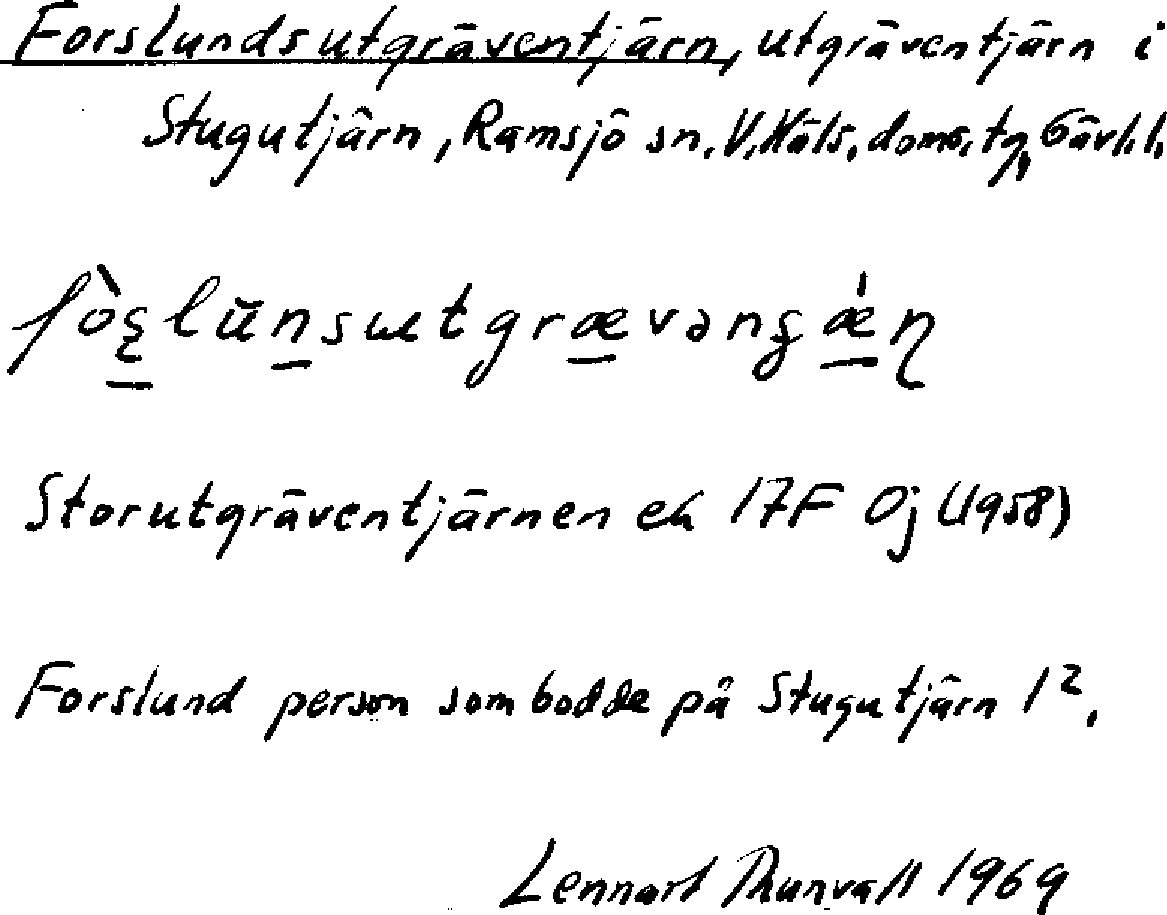 Forslundsutgräventjärn, utgräventjärn i
Stugutjärn, Ramsjö sn, V. Häls. doms. tg, Gävl. l.
fò̱ʂlŭn̲sɯtgræ̲vənʂǽ̲ɳ
Storutgräventjärnen ek 17F 0j (1958)
Forslund person som bodde på Stugutjärn 1².
Lennart Thunvall 1969